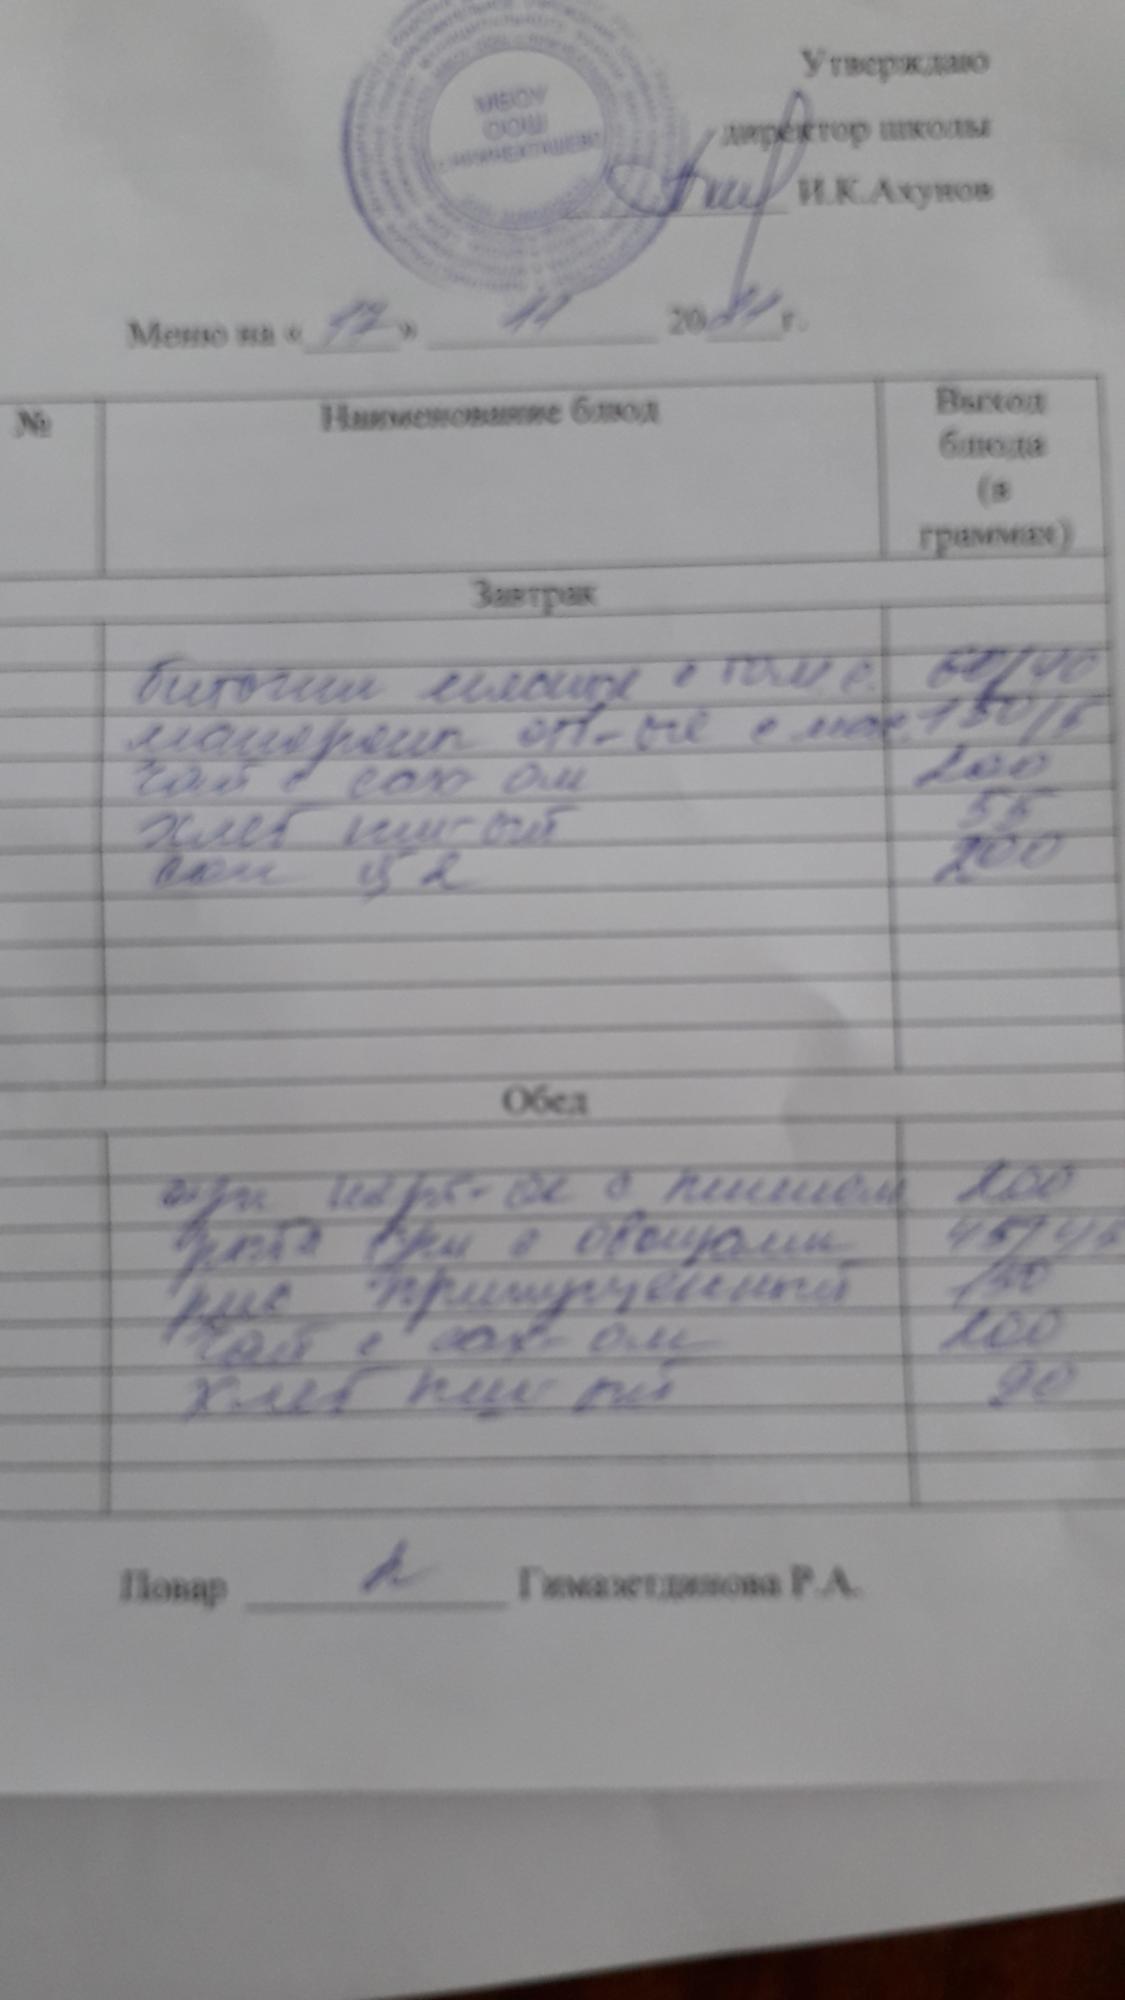 Утверждаю
директор школы
И.К.Ахунов
МБОУ
ООШ
Меню на «17» 11 2021г.
№ Наименование блюд Выход
блюда
(в
граммах)
Завтрак
биточки с том с. 60/40
макарон отв-ые с мас. 150/5
чай с сах ом 200
хлеб пш-ый 55
сок 200
Обед
с пшеном 200
с овощами 45/45
рис припущенный 150
чай с сах-ом 200
хлеб пш-ый 90
Повар Гимазетдинова Р.А.